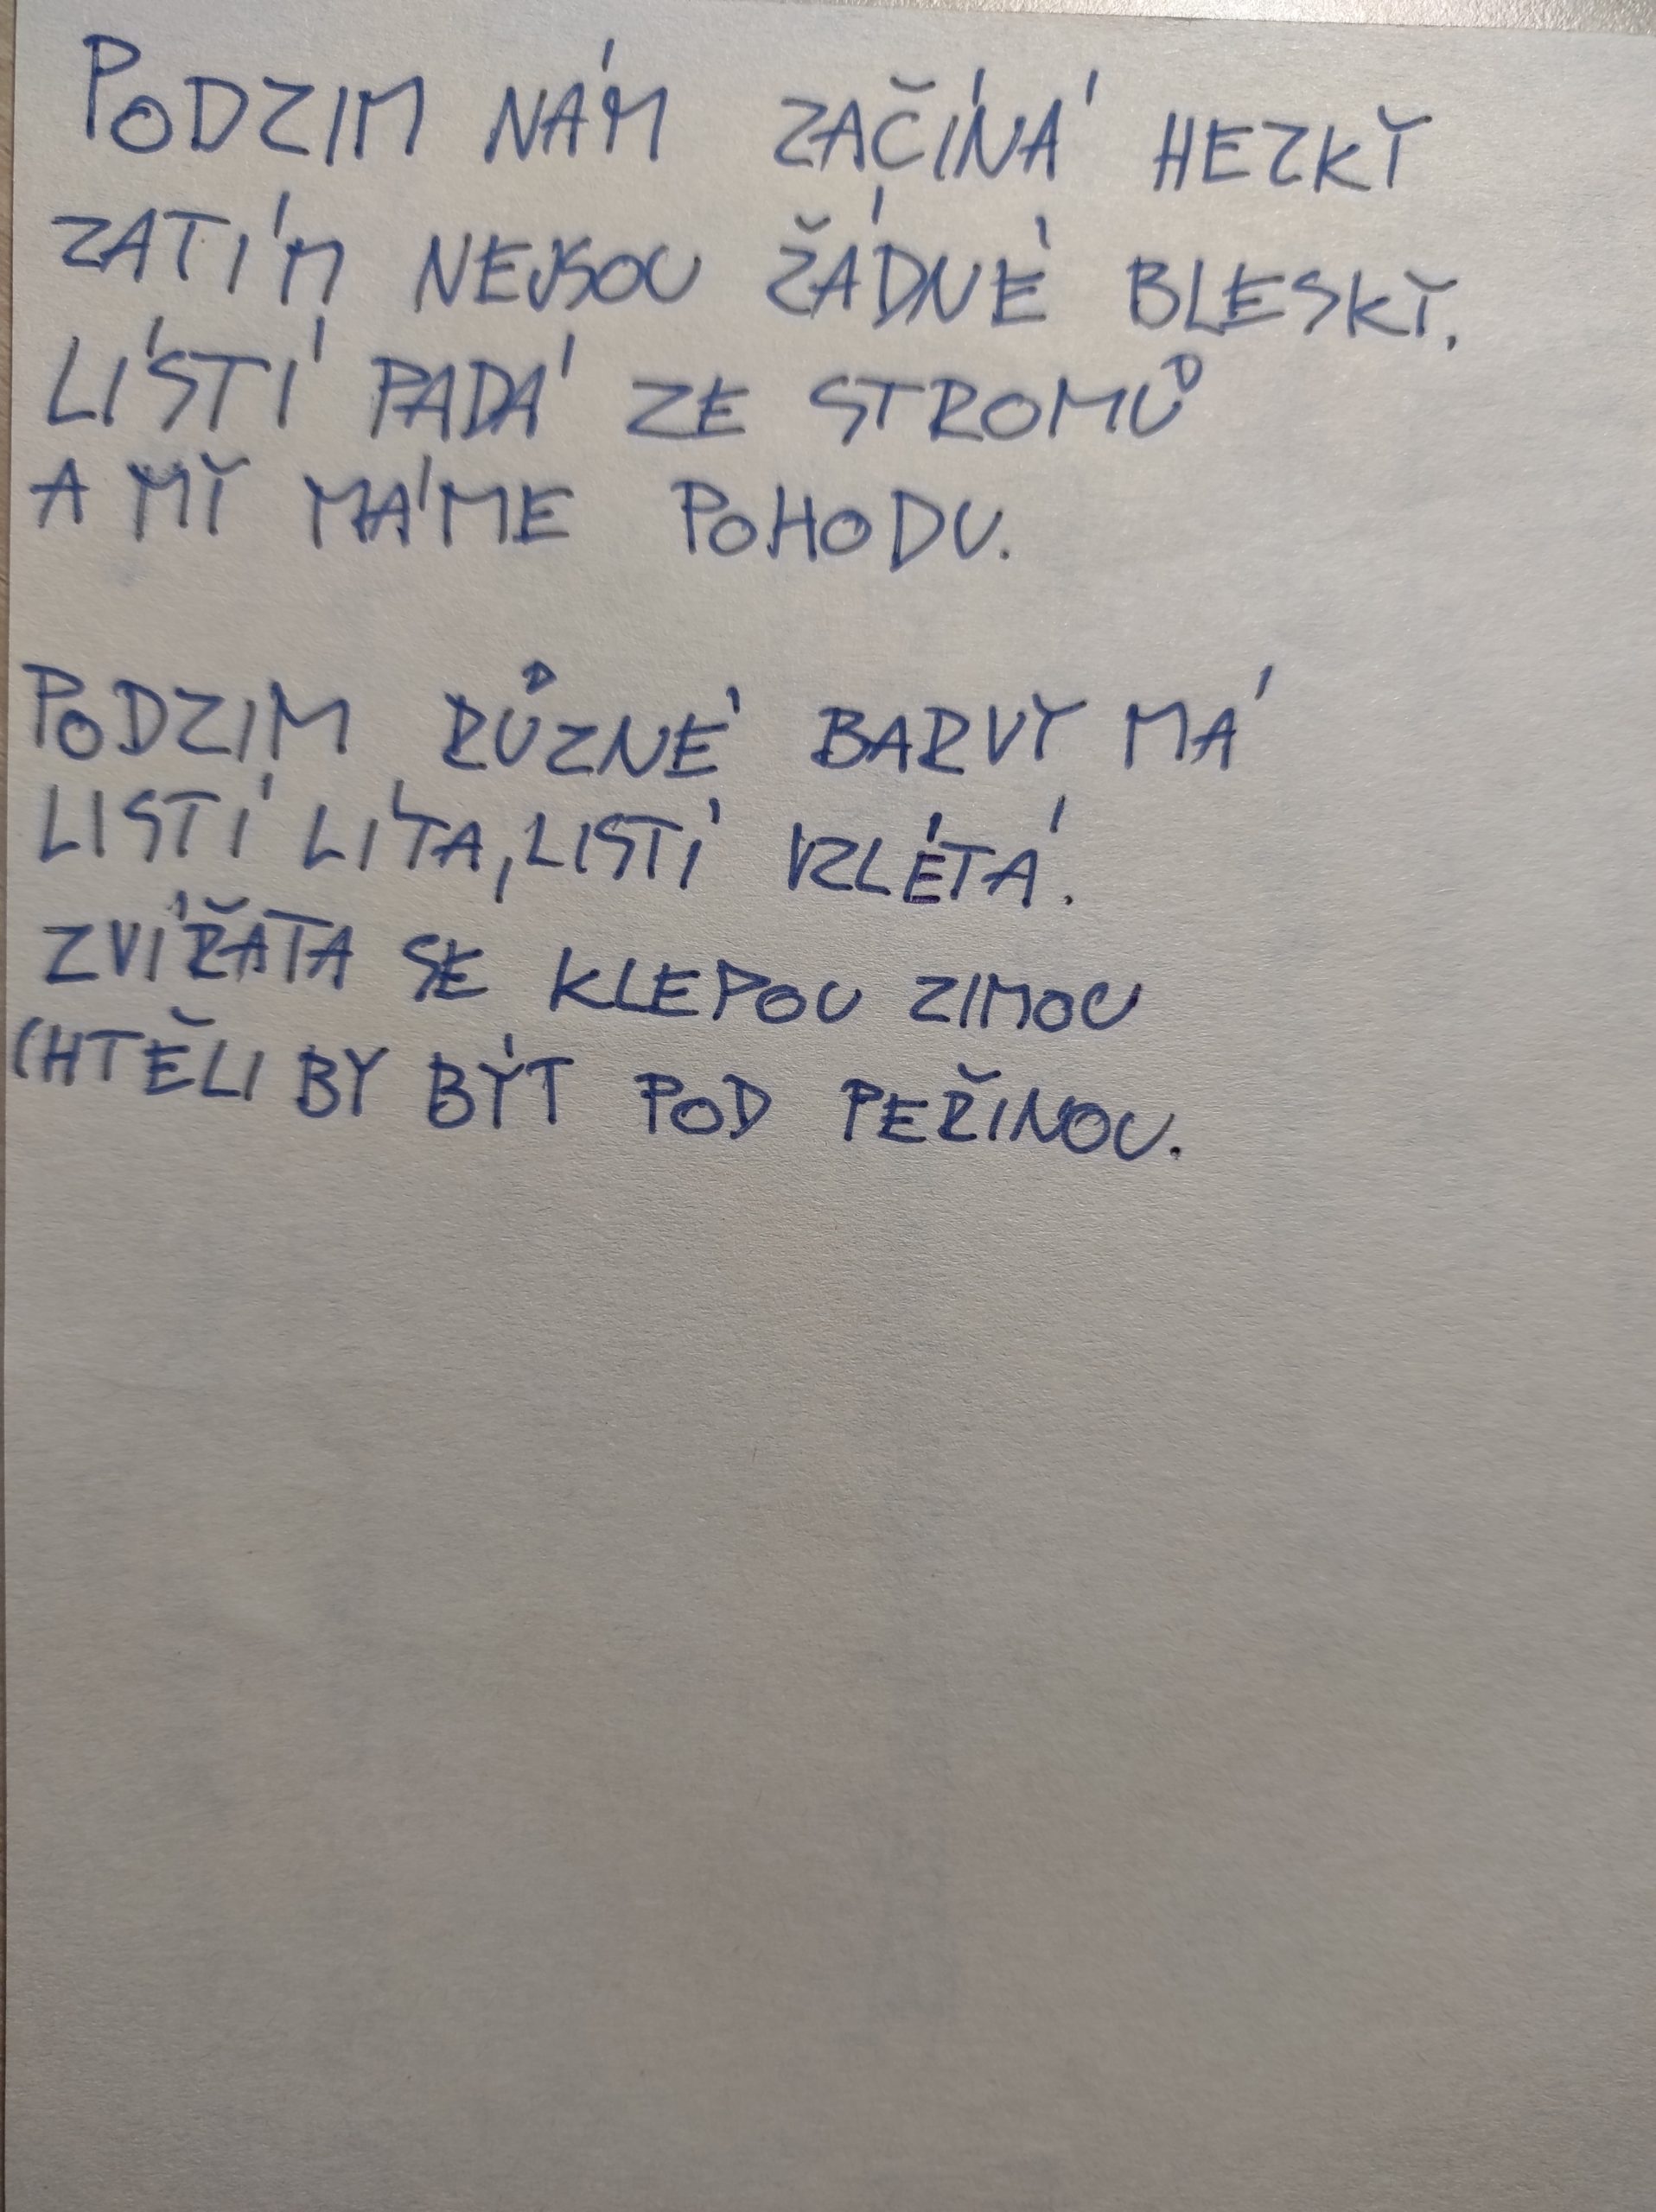 PODZIM NÁM ZAČÍNÁ HEZKY̌
ZATÍM NEJSOU ŽÁDNÉ BLESKY̌.
LÍSTÍ PADÁ ZE STROMŮ
A MY̌ MÁME POHODU.
PODZIM RŮZNÉ BARVY MÁ
LISTÍ LÍTA, LISTÍ VZLÉTÁ.
ZVÍŘATA SE KLEPOU ZIMOU
CHTĚLI BY BÝT POD PEŘINOU.